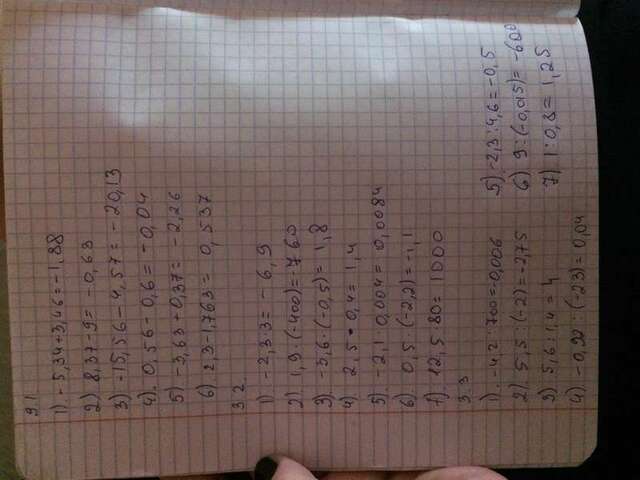 3.1
1) -5,34+3,46=-1,88
2) 8,37-9= -0,63
3) -15,56-4,57= -20,13
4). 0,56-0,6= -0,04
5) -3,63+0,37= -2,26
6) 2,3-1,763= 0,537
3.2.
1) -2,3·3= -6,9
2) 1,9·(-400)=-760
3). -3,6·(-0,5)= 1,8
4). 2,5·0,4= 1,4
5). -2,1·0,004= 0,0084
6). 0,5·(-2,2)=-1,1
7). 12,5·80= 1000
3.3
1). -4,2:700=-0,006
2). 5,5:(-2)=-2,75
3) 5,6:1,4=4
4). -0,92:(-23)=0,04
5) -2,3:4,6=-0,5
6) 9:(-0,015)= -600
7) 1:0,8= 1,25